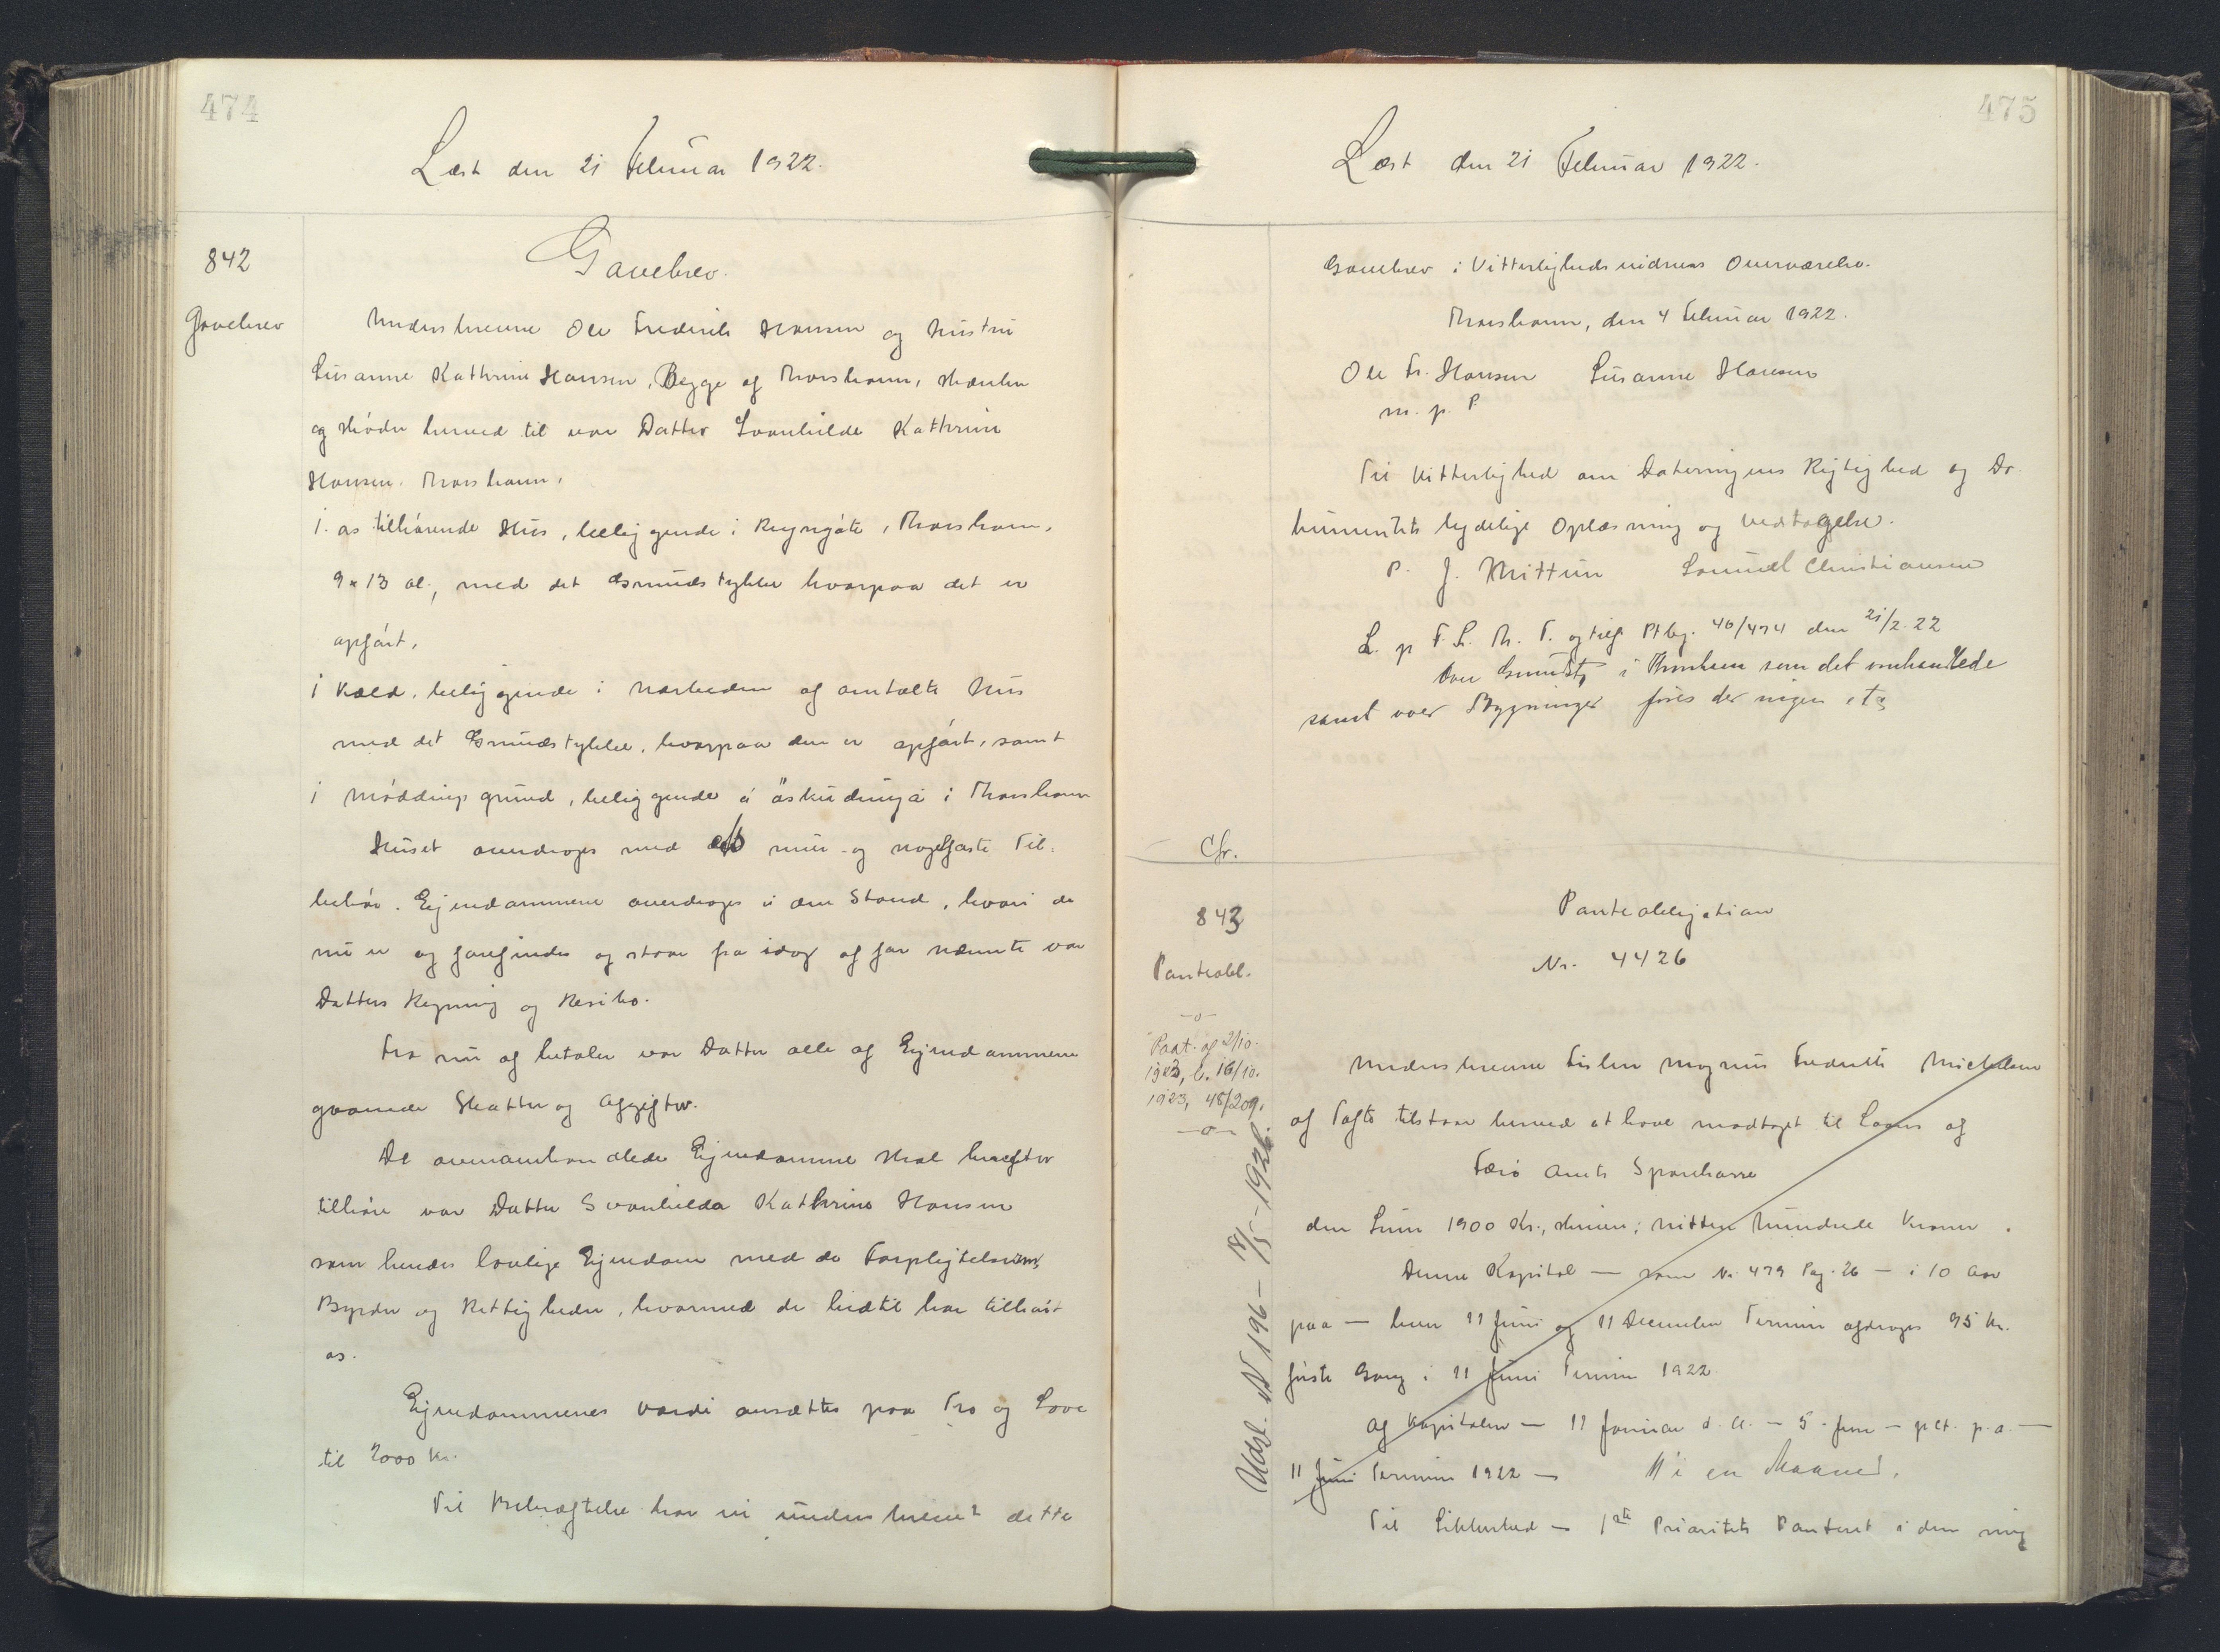 474
Læst den 21 Februar 1922.
842
Gavebrev
Gavebrev.
Underskrevne Ole Frederik Hansen og Hustru
Susanne Kathrine Hansen, Begge af Thorshavn, skænker
og skóder herved til vor Datter Svanhilda Kathrine
Hansen, Thorshavn,
1. os tilhórende Hus, beliggende i Ryngóta, Thorshavn,
9 x 13 al., med det Grundstykke hvorpaa det er
opfórt,
1 Kæld. beliggende i Nærheden af omtalte Hus
med det Grundstykke, hvorpaa den er opfórt, samt
1 Móddingsgrund, beliggende á i Thorshavn
Huset overdrages med mur- og nagelfaste Til-
behór. Ejendommene overdrages i den Stand, hvori de
nu er og forefindes og staar fra idag af for nævnte vor
Datters Regning og Risiko.
Fra nu af betaler vor Datter alle af Ejendommene
gaaende Skatter og Afgifter.
De ovenomhandlede Ejendomme skal herefter
tilhóre vor Datter Svanhilda Kathrine Hansen
som hendes lovlige Ejendom med de Forpligtelser,
Byrder og Rettigheder, hvormed de hidtil har tilhórt
os.
Ejendommenes Værdi ansættes paa Tro og Love
til 2000 Kr.
Til Bekræftelse har vi underskrevet dette
475
Læst den 21 Februar 1922.
Gavebrev i Vitterligheds vidners Overværelse.
Thorshavn, den 4 Februar 1922.
Ole Fr. Hansen Susanne Hansen
m. p. P.
Til Vitterlighed om Dateringens Rigtighed og Do-
kumentets tydelige Oplæsning og Vedtagelse.
P. J. Mittun Samuel Christiansen
L. p F. S. Th. T. og tilf. Ptbg. 46/474 den 21/2 22
Over Grundst. i Thorshavn som det omhandlede
samt over Bygninger føres der ingen
Cfr.
843
Panteobl.
—o—
Paat. af 2/10.
1923, l. 16/10.
1923, 48/209.
—o—
Udsl. N 196 - 18/5 - 1926.
Panteobligation
Nr. 4426
Underskrevne Fisker Magnus Frederik Michelsen
af Tofte tilstaar herved at have modtaget til Laans af
Færø Amts Sparekasse
den Sum 1900 Kr., skriver; Nitten Hundrede Kroner.
Denne Kapital — som Nr. 479 Pag. 26 — i 10 Aar
paa — hver 11 Juni og 11 December Termin afdrages 95 Kr.
første Gang i 11 Juni Termin 1922.
Af Kapitalen — 11 Januar d. A. — 5 - fem - pct. p. a. —
11 Juni Termin 1922 — i en Maaned.
Til Sikkerhed — 1ste Prioritets Panteret i den mig